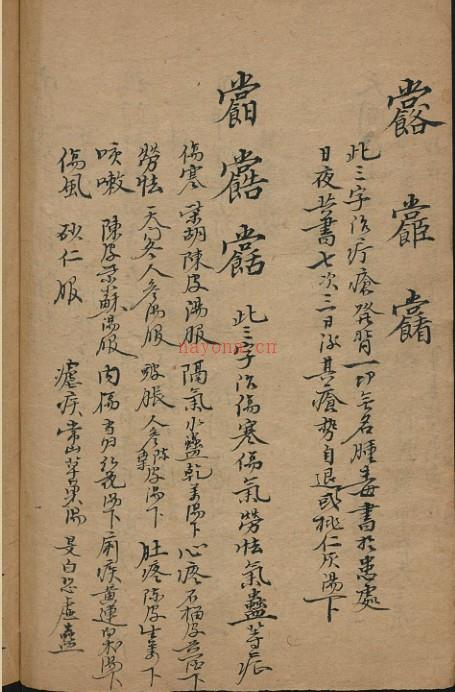 此三字治疔瘡發背一切無名腫毒書於患處
日夜共書七次三日後其瘡勢自退或桃仁灰湯下
此三字治傷寒傷氣勞怯氣蠱等症
傷寒 柴胡陳皮湯服 隔氣水乾姜湯下 心疼石榴皮下
勞怯 天冬人參湯服 鼓脹人參陳皮湯下 肚疼陳皮生姜下
咳嗽 陳皮紫蘇湯服 內傷當歸紅花湯下 痢疾黃連湯下
傷風 砂仁服 瘧疾常山草菓湯
nayona.cn